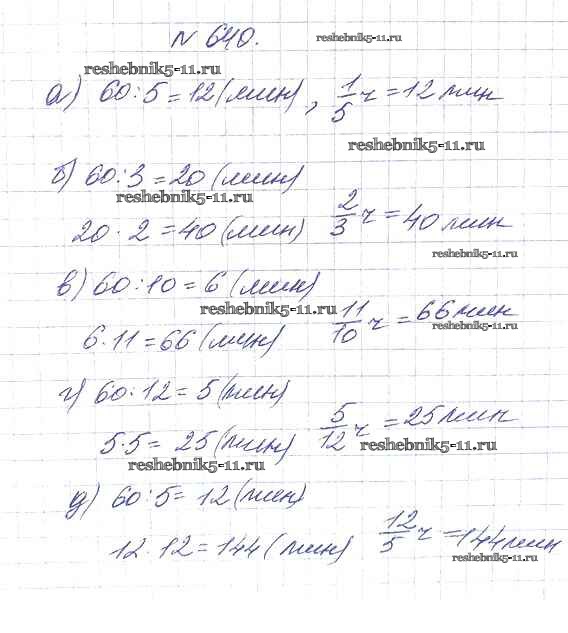 N 640.
reshebnik5-11.ru
reshebnik5-11.ru
а) 60:5=12(мин), 1/5 ч = 12 мин
reshebnik5-11.ru
б) 60:3=20 (мин)
reshebnik5-11.ru
20·2=40(мин) 2/3 ч = 40 мин
reshebnik5-11.ru
в) 60:10=6 (мин)
reshebnik5-11.ru
6·11=66 (мин) 11/10 ч = 66 мин
reshebnik5-11.ru
г) 60:12=5 (мин)
5·5= 25(мин) 5/12 ч = 25 мин
reshebnik5-11.ru
reshebnik5-11.ru
д) 60:5= 12(мин)
12·12=144(мин) 12/5 ч = 144 мин
reshebnik5-11.ru